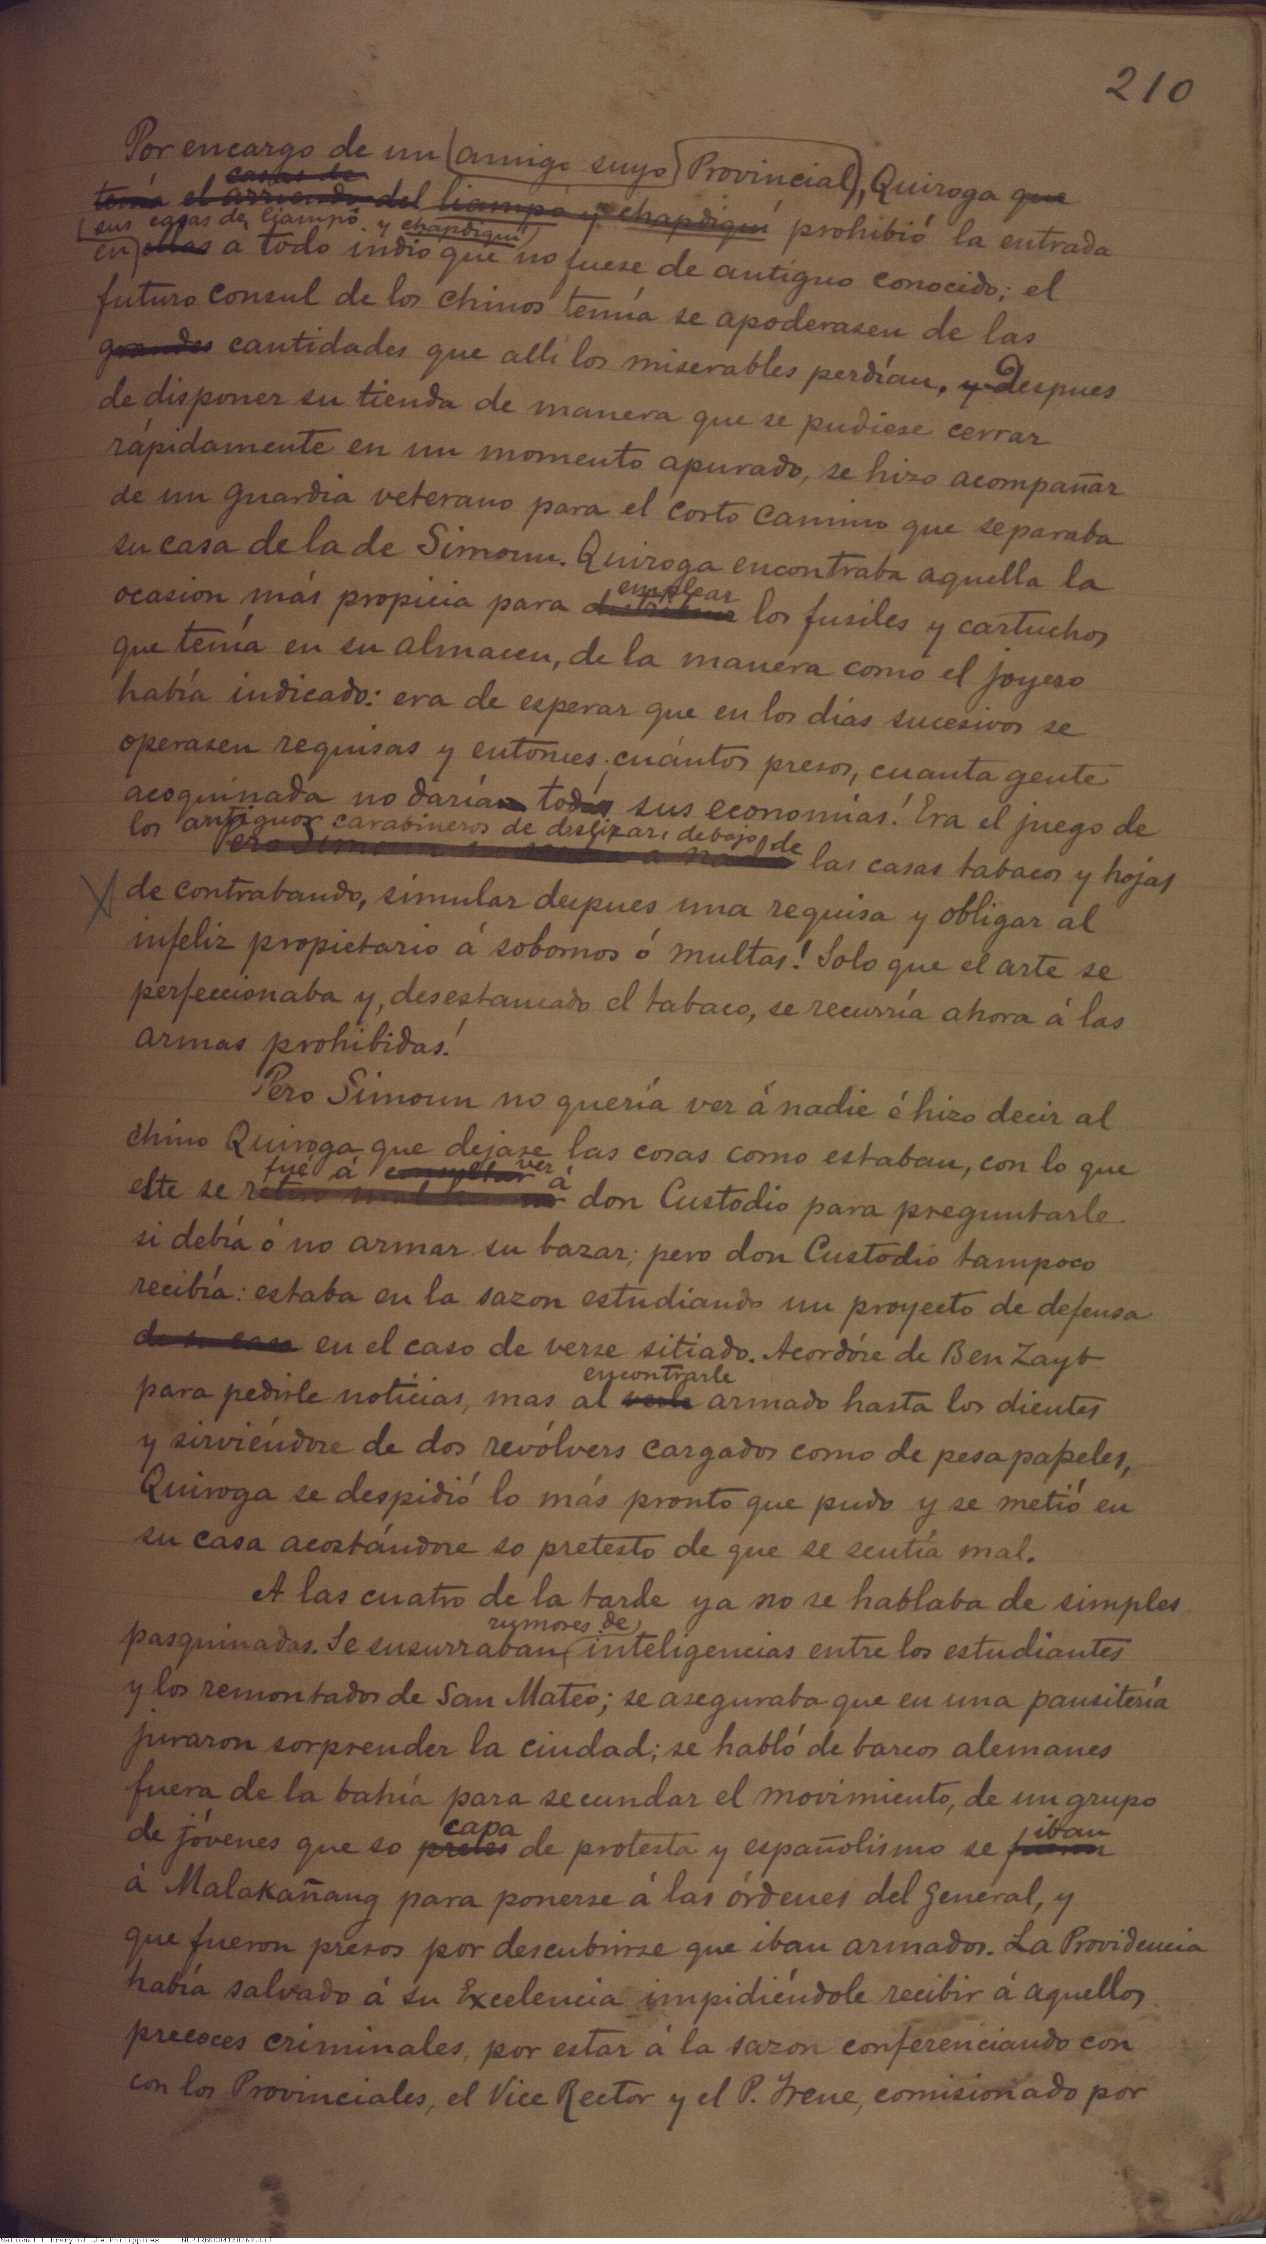 210
Por encargo de un amigo suyo Provincial, Quiroga que
casas de
tenía el arriendo del liampó y chapdiquí prohibió la entrada
sus casas de liampó y chapdiquí
en ellas a todo indio que no fuese de antiguo conocido; el
futuro consul de los chinos temía se apoderasen de las
grandes cantidades que allí los miserables perdían, y Despues
de disponer su tienda de manera que se pudiese cerrar
rápidamente en un momento apurado, se hizo acompañar
de un guardia veterano para el corto camino que separaba
su casa de la de Simoun. Quiroga encontraba aquella la
emplear
ocasion más propicia para los fusiles y cartuchos
que tenía en su almacen, de la manera como el joyero
había indicado: era de esperar que en los días sucesivos se
operasen requisas y entonces ¡cuántos presos, cuanta gente
acoquinada no darían todas sus economías! Era el juego de
los antiguos carabineros de deslizar debajo de
Pero Simoun no a nadie las casas tabacos y hojas
de contrabando, simular despues una requisa y obligar al
infeliz propietario á sobornos ó multas! Solo que el arte se
perfeccionaba y, desestancado el tabaco, se recurría ahora á las
armas prohibidas!
Pero Simoun no quería ver á nadie é hizo decir al
chino Quiroga que dejase las cosas como estaban, con lo que
fué á consultar ver á
este se don Custodio para preguntarle
si debía ó no armar su bazar; pero don Custodio tampoco
recibía: estaba en la sazon estudiando un proyecto de defensa
de su casa en el caso de verse sitiado. Acordóse de Ben Zayb
encontrarle
para pedirle noticias, mas al verle armado hasta los dientes
y sirviéndose de dos revólvers cargados como de pesapapeles,
Quiroga se despidió lo más pronto que pudo y se metió en
su casa acostándose so pretesto de que se sentía mal.
A las cuatro de la tarde ya no se hablaba de simples
rumores de
pasquinadas. Se susurraban inteligencias entre los estudiantes
y los remontados de San Mateo; se aseguraba que en una pansitería
juraron sorprender la ciudad; se habló de barcos alemanes
fuera de la bahía para secundar el movimiento, de un grupo
capa iban
de jóvenes que so pretes de protesta y españolismo se fueron
á Malakañang para ponerse á las órdenes del General, y
que fueron presos por descubrirse que iban armados. La Providencia
había salvado á su Excelencia impidiéndole recibir á aquellos
precoces criminales, por estar á la sazon conferenciando con
con los Provinciales, el Vice Rector y el P. Irene, comisionado por